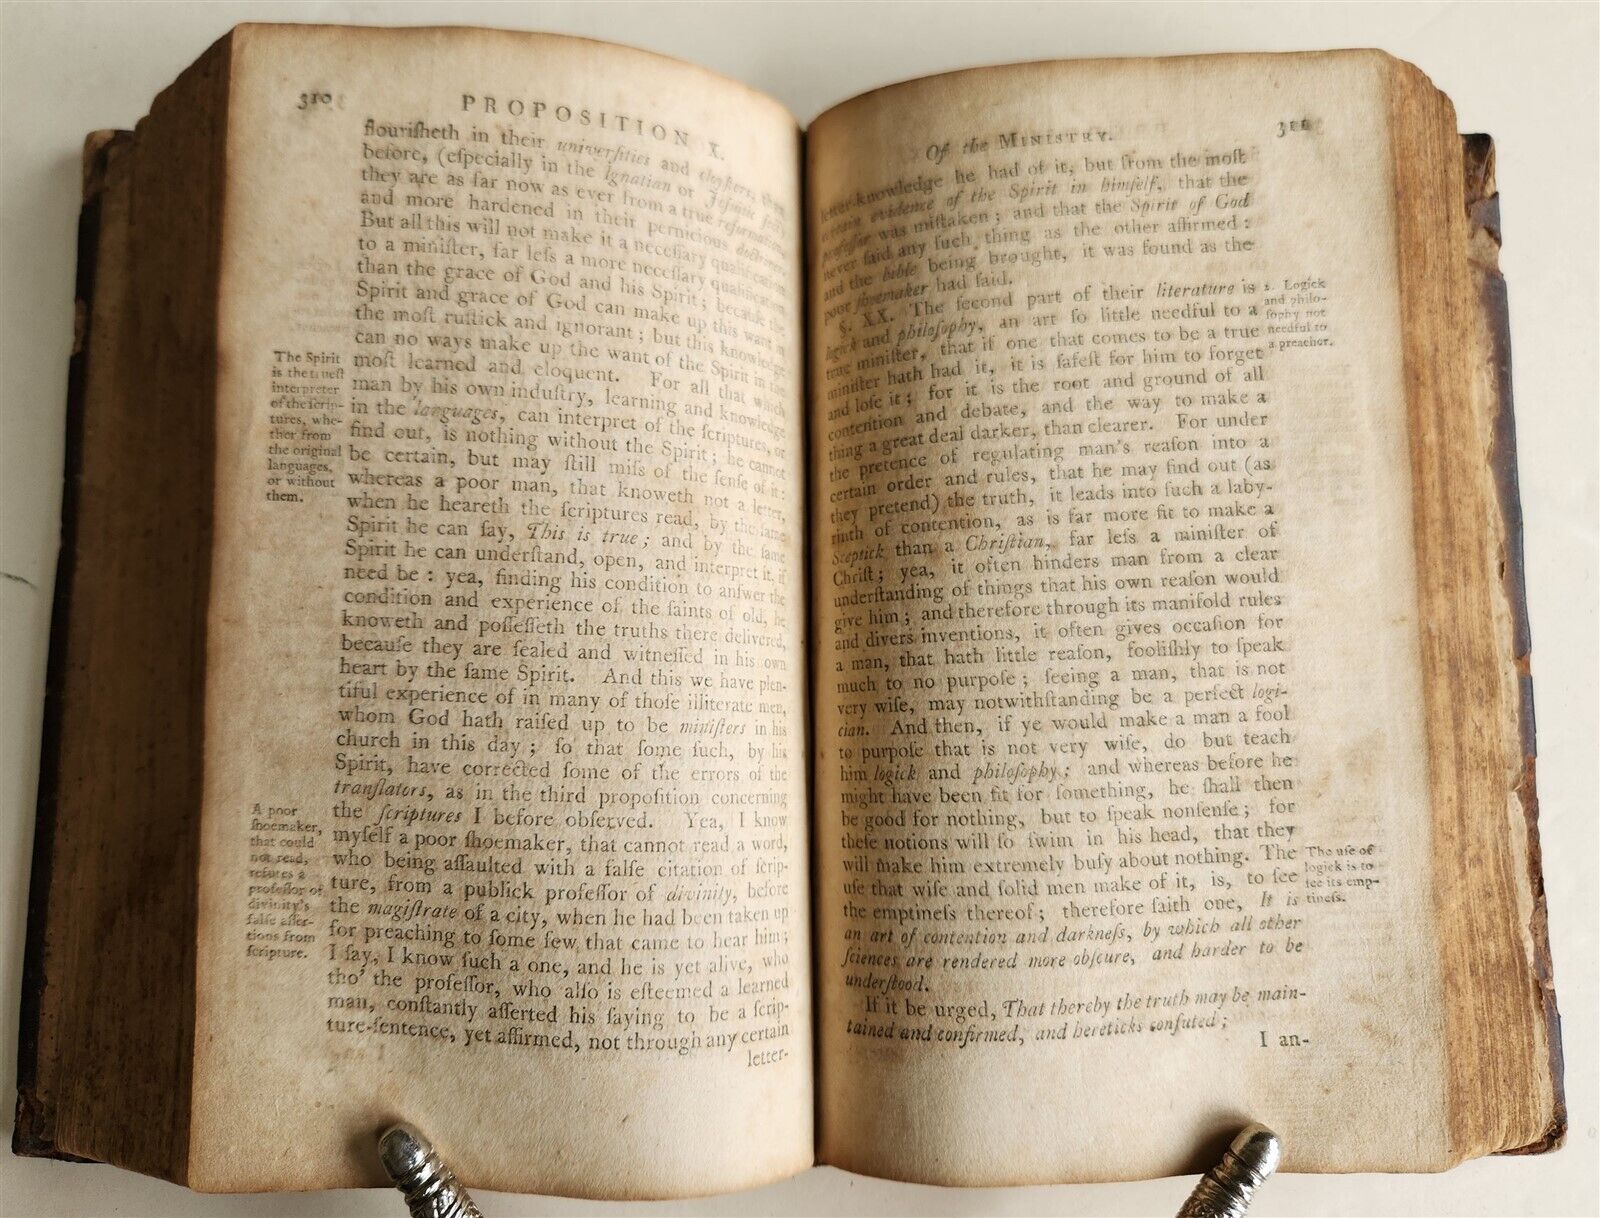 310
PROPOSITION X.
flouriſheth in their univerſities and cloyſters, than
before, (eſpecially in the Ignatian or Jeſuitic ſect)
they are as far now as ever from a true reformation,
and more hardened in their pernicious doctrines.
But all this will not make it a neceſſary qualification
to a miniſter, far leſs a more neceſſary qualification
than the grace of God and his Spirit; becauſe the
Spirit and grace of God can make up this want in
the moſt ruſtick and ignorant; but this knowledge
can no ways make up the want of the Spirit in the
moſt learned and eloquent. For all that which
man by his own induſtry, learning and knowledge
in the languages, can interpret of the ſcriptures, or
find out, is nothing without the Spirit; he cannot
be certain, but may ſtill miſs of the ſenſe of it:
whereas a poor man, that knoweth not a letter,
when he heareth the ſcriptures read, by the ſame
Spirit he can ſay, This is true; and by the ſame
Spirit he can underſtand, open, and interpret it, if
need be: yea, finding his condition to anſwer the
condition and experience of the ſaints of old, he
knoweth and poſſeſſeth the truths there delivered,
becauſe they are ſealed and witneſſed in his own
heart by the ſame Spirit. And this we have plen-
tiful experience of in many of thoſe illiterate men,
whom God hath raiſed up to be miniſters in his
church in this day; ſo that ſome ſuch, by his
Spirit, have corrected ſome of the errors of the
tranſlators, as in the third propoſition concerning
the ſcriptures I before obſerved. Yea, I know
myſelf a poor ſhoemaker, that cannot read a word,
who being aſſaulted with a falſe citation of ſcrip-
ture, from a publick profeſſor of divinity, before
the magiſtrate of a city, when he had been taken up
for preaching to ſome few that came to hear him;
I ſay, I know ſuch a one, and he is yet alive, who
tho' the profeſſor, who alſo is eſteemed a learned
man, conſtantly aſſerted his ſaying to be a ſcrip-
ture-ſentence, yet affirmed, not through any certain
letter-
The Spirit
is the trueſt
interpreter
of the ſcrip-
tures, whe-
ther from
the original
languages,
or without
them.
A poor
ſhoemaker,
that could
not read,
refutes a
profeſſor of
divinity's
falſe aſſer-
tions from
ſcripture.
Of the MINISTRY.
311
letter-knowledge he had of it, but from the moſt
certain evidence of the Spirit in himſelf, that the
profeſſor was miſtaken; and that the Spirit of God
never ſaid any ſuch thing as the other affirmed:
and the bible being brought, it was found as the
poor ſhoemaker had ſaid.
§. XX. The ſecond part of their literature is
logick and philoſophy, an art ſo little needful to a
true miniſter, that if one that comes to be a true
miniſter hath had it, it is ſafeſt for him to forget
and loſe it; for it is the root and ground of all
contention and debate, and the way to make a
thing a great deal darker, than clearer. For under
the pretence of regulating man's reaſon into a
certain order and rules, that he may find out (as
they pretend) the truth, it leads into ſuch a laby-
rinth of contention, as is far more fit to make a
Sceptick than a Chriſtian, far leſs a miniſter of
Chriſt; yea, it often hinders man from a clear
underſtanding of things that his own reaſon would
give him; and therefore through its manifold rules
and divers inventions, it often gives occaſion for
a man, that hath little reaſon, fooliſhly to ſpeak
much to no purpoſe; ſeeing a man, that is not
very wiſe, may notwithſtanding be a perfect logi-
cian. And then, if ye would make a man a fool
to purpoſe that is not very wiſe, do but teach
him logick and philoſophy; and whereas before he
might have been fit for ſomething, he ſhall then
be good for nothing, but to ſpeak nonſenſe; for
theſe notions will ſo ſwim in his head, that they
will make him extremely buſy about nothing. The
uſe that wiſe and ſolid men make of it, is, to ſee
the emptineſs thereof; therefore ſaith one, It is
an art of contention and darkneſs, by which all other
ſciences are rendered more obſcure, and harder to be
underſtood.
If it be urged, That thereby the truth may be main-
tained and confirmed, and hereticks confuted;
I an-
2. Logick
and philo-
ſophy not
needful to
a preacher.
The uſe of
logick is to
ſee its emp-
tineſs.